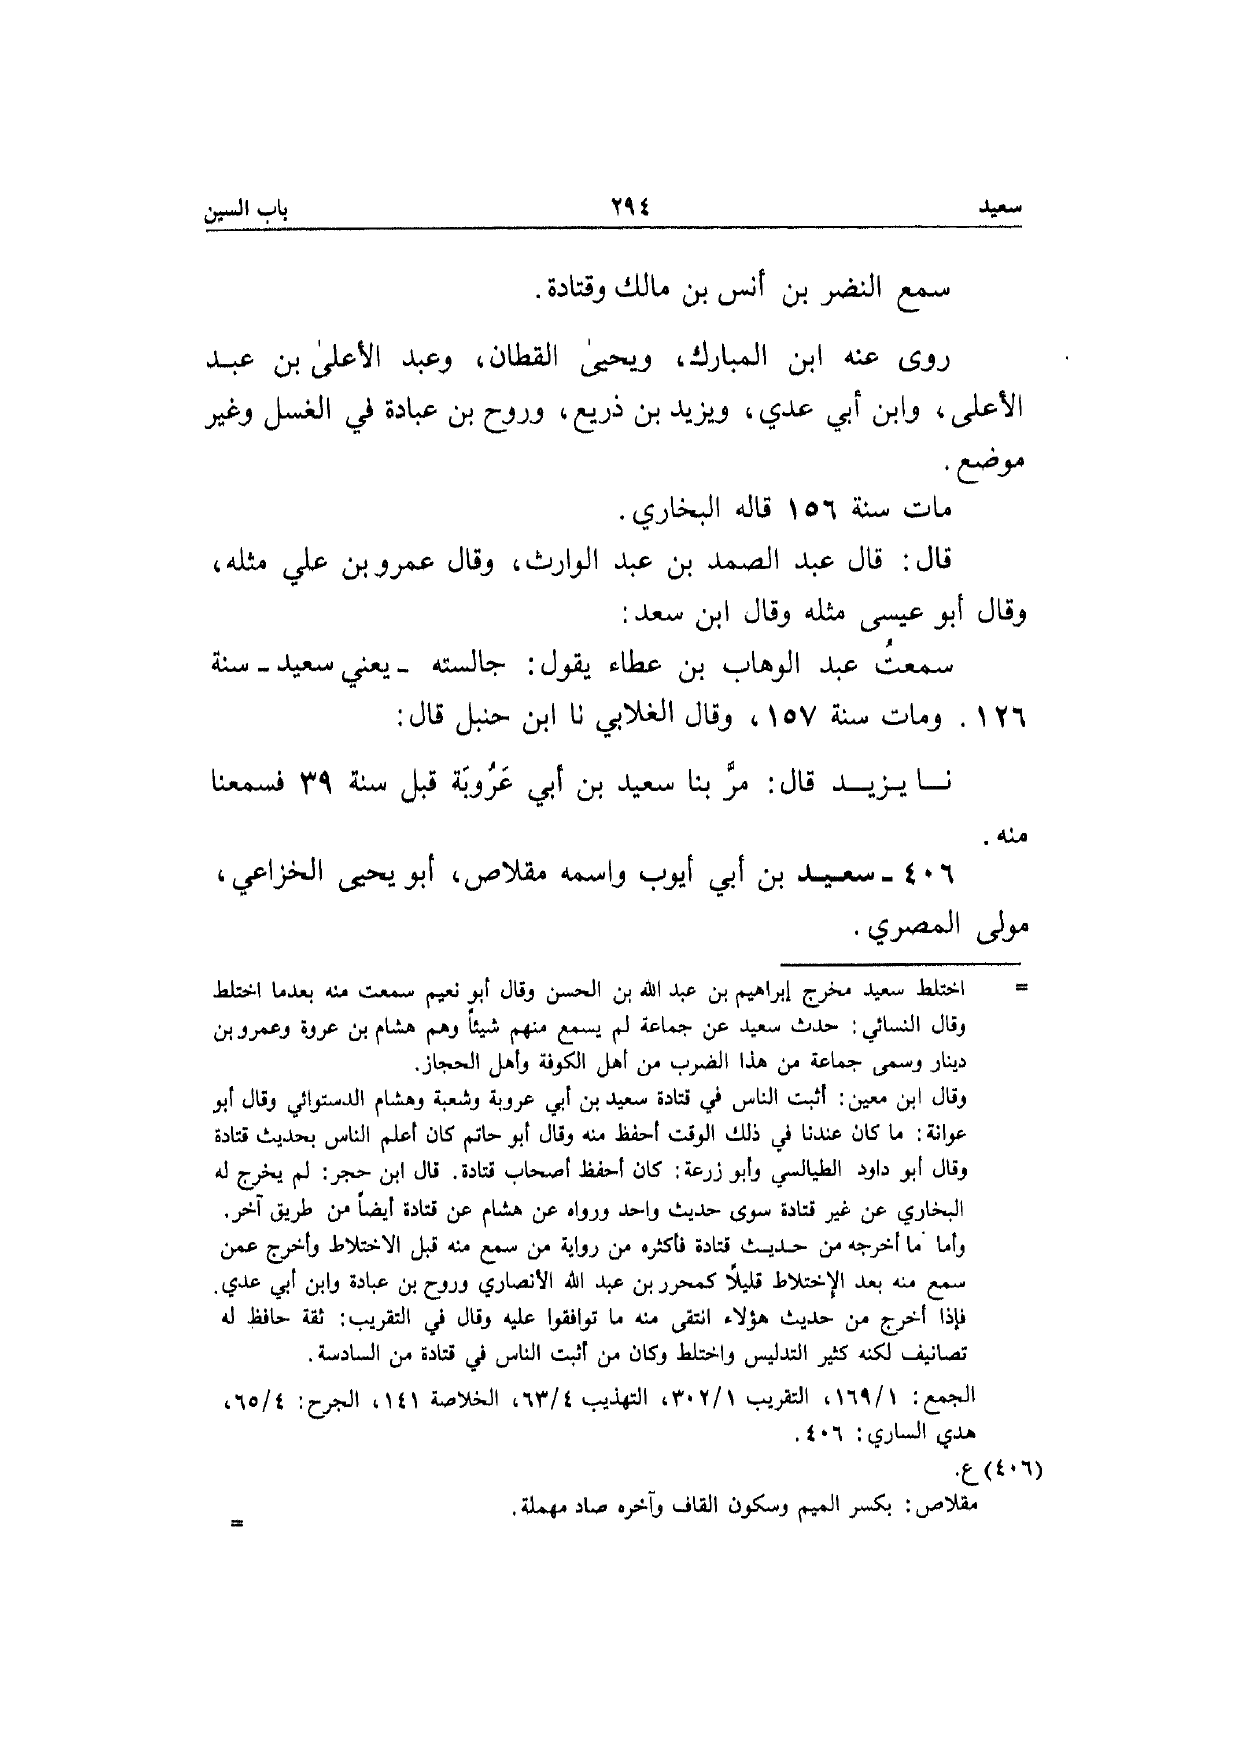 سعيد ٢٩٤ باب السين
سمع النضر بن أنس بن مالك وقتادة.
روى عنه ابن المبارك، ويحيىٰ القطان، وعبد الأعلىٰ بن عبد
الأعلى، وابن أبي عدي، ويزيد بن ذريع، وروح بن عبادة في الغسل وغير
موضع.
مات سنة ١٥٦ قاله البخاري.
قال: قال عبد الصمد بن عبد الوارث، وقال عمرو بن علي مثله،
وقال أبو عيسى مثله وقال ابن سعد:
سمعتُ عبد الوهاب بن عطاء يقول: جالسته ـ يعني سعيد ـ سنة
١٢٦. ومات سنة ١٥٧، وقال الغلابي نا ابن حنبل قال:
نا يزيد قال: مرَّ بنا سعيد بن أبي عَرُوبَة قبل سنة ٣٩ فسمعنا
منه.
٤٠٦ ـ سعيد بن أبي أيوب واسمه مقلاص، أبو يحيى الخزاعي،
مولى المصري.
= اختلط سعيد مخرج إبراهيم بن عبد الله بن الحسن وقال أبو نعيم سمعت منه بعدما اختلط
وقال النسائي: حدث سعيد عن جماعة لم يسمع منهم شيئاً وهم هشام بن عروة وعمرو بن
دينار وسمى جماعة من هذا الضرب من أهل الكوفة وأهل الحجاز.
وقال ابن معين: أثبت الناس في قتادة سعيد بن أبي عروبة وشعبة وهشام الدستوائي وقال أبو
عوانة: ما كان عندنا في ذلك الوقت أحفظ منه وقال أبو حاتم كان أعلم الناس بحديث قتادة
وقال أبو داود الطيالسي وأبو زرعة: كان أحفظ أصحاب قتادة. قال ابن حجر: لم يخرج له
البخاري عن غير قتادة سوى حديث واحد ورواه عن هشام عن قتادة أيضاً من طريق آخر.
وأما ما أخرجه من حديث قتادة فأكثره من رواية من سمع منه قبل الاختلاط وأخرج عمن
سمع منه بعد الإختلاط قليلاً كمحرر بن عبد الله الأنصاري وروح بن عبادة وابن أبي عدي.
فإذا أخرج من حديث هؤلاء انتقى منه ما توافقوا عليه وقال في التقريب: ثقة حافظ له
تصانيف لكنه كثير التدليس واختلط وكان من أثبت الناس في قتادة من السادسة.
الجمع: ١٦٩/١، التقريب ٣٠٢/١، التهذيب ٦٣/٤، الخلاصة ١٤١، الجرح: ٦٥/٤،
هدي الساري: ٤٠٦.
(٤٠٦) ع.
مقلاص: بكسر الميم وسكون القاف وآخره صاد مهملة.
=